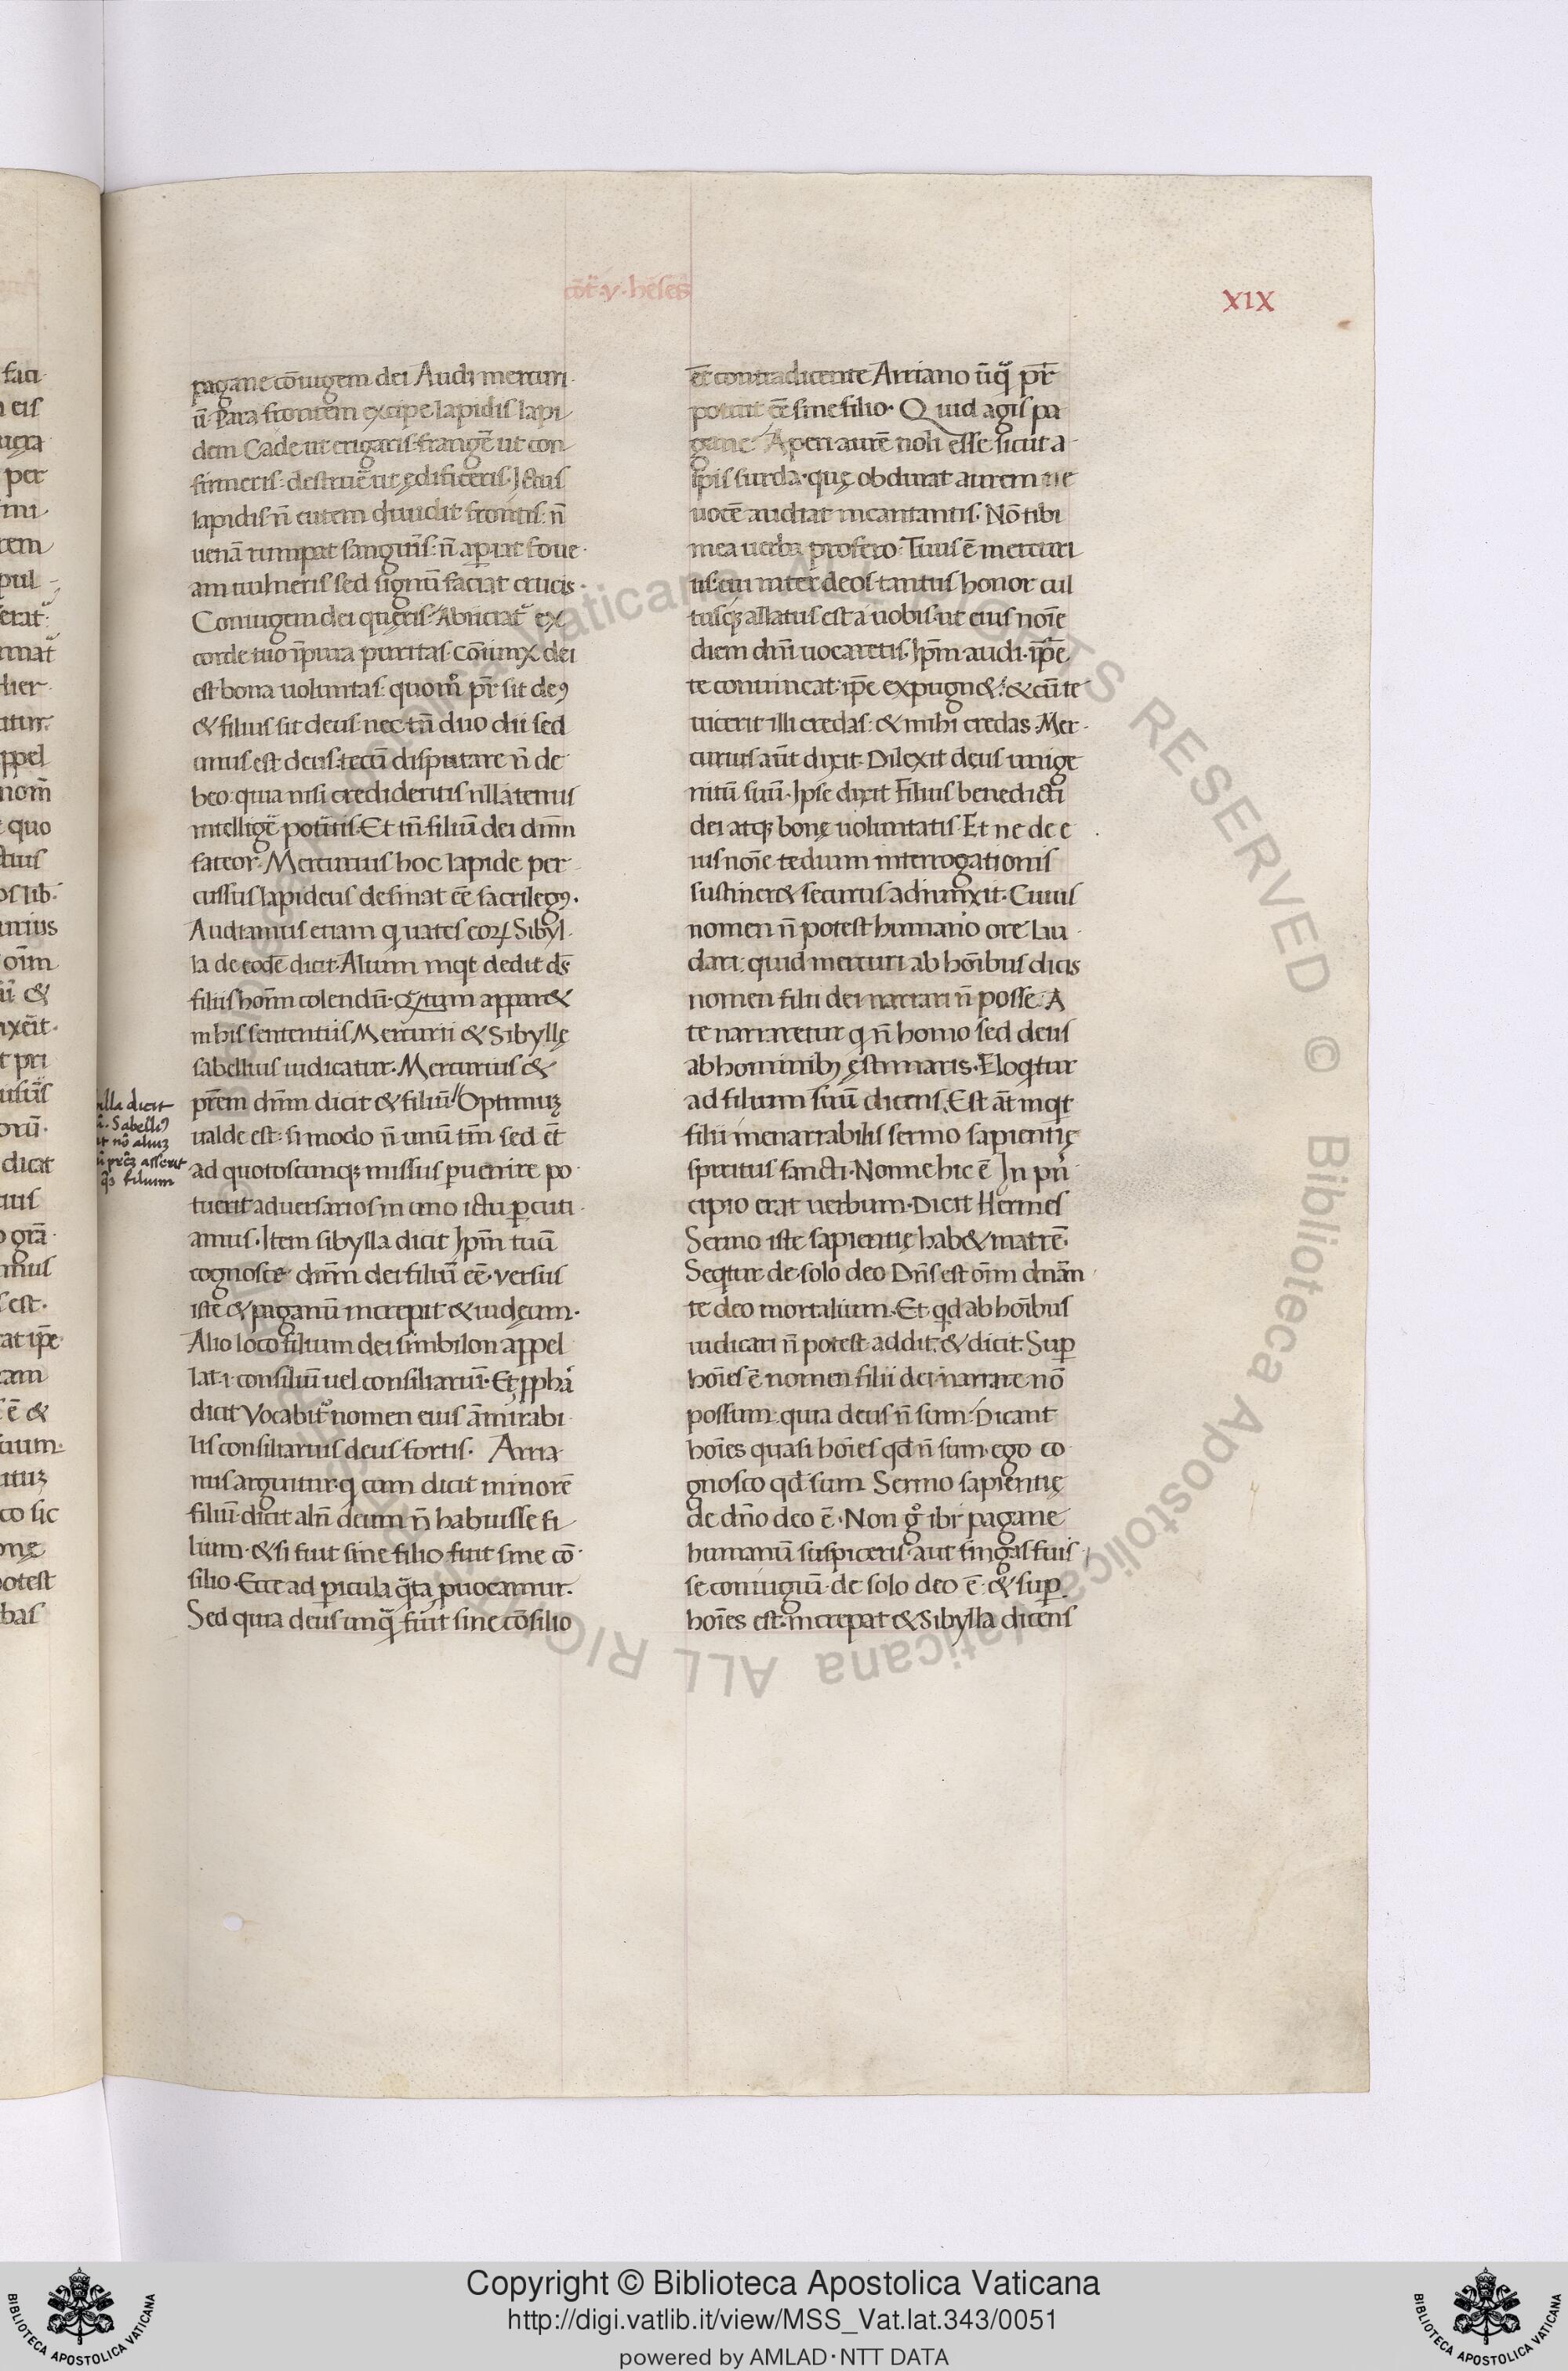 cōt̄·v·hēses
XIX
pagane cōiugem dei Audi mercuri
ū· Para frontem excipe lapidis lapi
dem Cade ut erigaris·frange᷑ ut con
firmeris· destrue᷑ ut ędificeris·Ictus
lapidis n̄ cutem diuidit frontis: n̄
uenā rumpat sanguīs: n̄ apiat foue
am uulneris sed signū faciat crucis·
Coniugem dei quęris·Abiiciat᷑ ex
corde tuo īpura puritas·Cōiunx dei
est bona uoluntas: quom̊ pr̄ sit deꝰ
& filius sit deus· nec tn̄ duo dii sed
unus est deus·tecū disputare n̄ de
beo· quia nisi credideritis nllātenus
intellige᷑ potitis·Et tn̄ filiū dei dn̄m
fateor·Mercurius hoc lapide per
cussus lapideus desinat ēe sacrilegꝰ·
Audiamus etiam q uates eoꝝ Sibyl
la de eodē dicit·Alium inqt dedit ds̄
filiis hoīm colendū·Qtum appar&
in his sententiis Mercurii & Sibyllę
sabellius iudicatur·Mercurius &
pr̄em dn̄m dicit & filiū"Optimuꝫ
ualde est· si modo n̄ unū tm̄ sed et̄
ad quotoscunqꝫ missus puenire po
tuerit aduersarios in uno ictu pcuti
amus·Item sibylla dicit Ip̄m tuū
cognosce dn̄m dei filiū ēe·versus
iste & paganū increpit & iudęum·
Alio loco filium dei simbilon appel
lat·i·consiliū uel consiliariū·Et ꝓpha
dicit Vocabit᷑ nomen eius āmirabi
lis consiliarius deus fortis· Arria
nus arguitur·q cum dicit minorē
filiū·dicit alīn̄ deum n̄ habuisse fi
lium·& si fuit sine filio fuit sine cō
silio·Ecce ad picula q̄ta ꝓuocamur·
Sed quia deus unq̄ fuit sine cōsilio
et̄ contradicente Arriano ūq̄ pr̄
potuit ēe sine filio·Quid agis pa
gane·Aperi aurē noli esse sicut a
spis surda·quę obdurat aurem ne
uocē audiat incantantis·Nō tibi
mea uerba profero·Tuus ē mercuri
us·cui inter deos tantus honor cul
tusqꝫ allatus est a uobis·ut eius noīe
diem dn̄i uocaretis·Ip̄m audi·ip̄e
te conuincat·ip̄e expugn&·& cū te
uicerit illi credas·& mihi credas·Mer
curius aūt dixit·Dilexit deus unige
nitū suū·Ipse dixit Filius benedicti
dei atqꝫ bonę uoluntatis·Et ne de e
ius noīe tedium interrogationis
sustiner& securus adiunxit·Cuius
nomen n̄ potest humano ore lau
dari· quid mercuri ab hoībus dicis
nomen filii dei narrari n̄ posse·A
te narraretur q n̄ homo sed deus
ab hominibꝫ ęstimaris·Eloqtur
ad filium suū dicens·Est aūt inqt
filii inenarrabilis sermo sapientię
spiritus sancti·Nonne hic ē In pri
cipio erat uerbum·Dicit Hermes
Sermo iste sapientię hab& matrē·
Seqtur·de solo deo Dn̄s est oīm dn̄an
te deo mortalium·Et qd ab hoībus
iudicari n̄ potest addit·& dicit·Sup
hoīes ē nomen filii dei narrare nō
possum·quia deus n̄ sum·Dicant
hoīes quasi hoīes qd n̄ sum·ego co
gnosco qd sum Sermo sapientię
de dn̄o deo ē·Non g̊ ibi pagane
humanū suspiceris·aut fingas fuis
se coniugiū·de solo deo ē·& sup
hoīes est·increpat & Sibylla dicens
illa dicit
Sabelliꝰ
nō aliuꝫ
asserit
filium
Copyright © Biblioteca Apostolica Vaticana
http://digi.vatlib.it/view/MSS_Vat.lat.343/0051
powered by AMLAD·NTT DATA
BIBLIOTECA APOSTOLICA VATICANA
BIBLIOTECA APOSTOLICA VATICANA
© Biblioteca Apostolica Vaticana ALL RIGHTS RESERVED